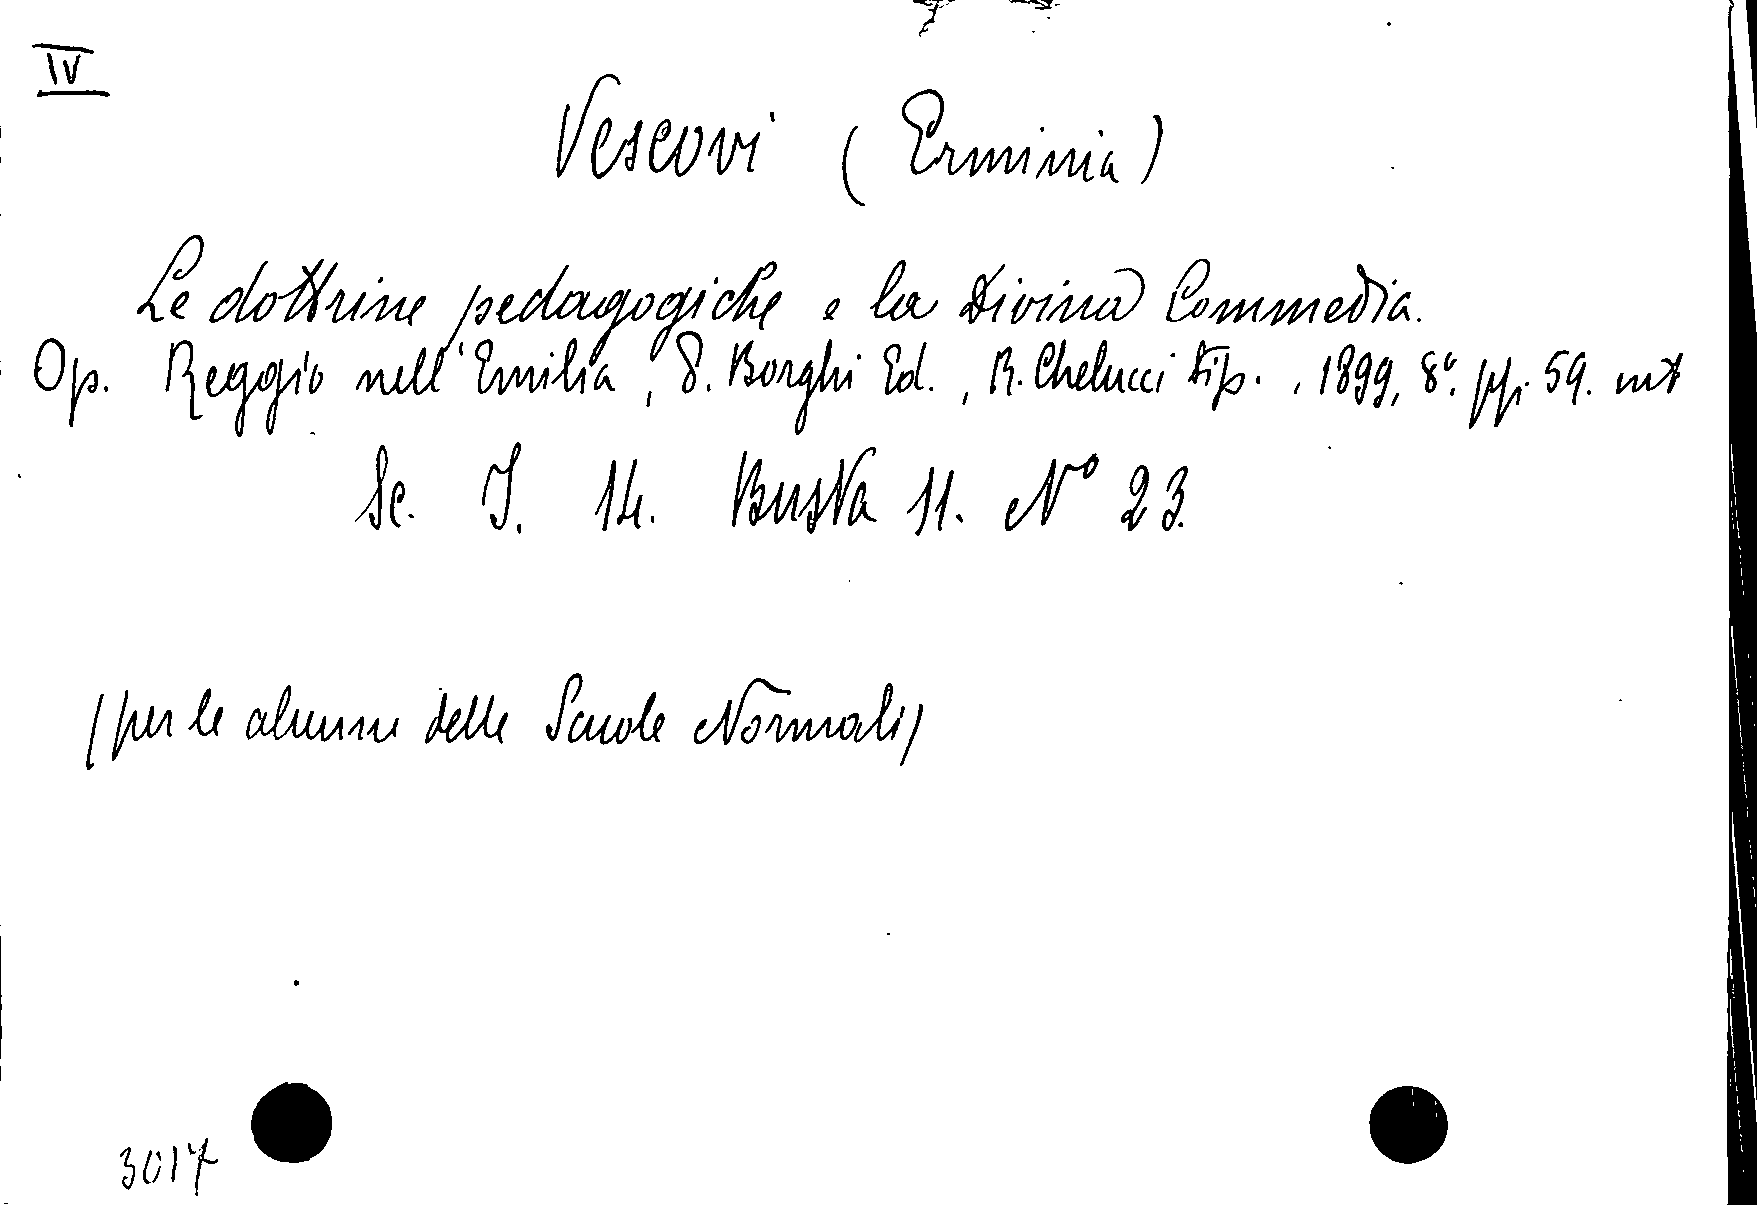 IV
Vescovi (Erminia)
Le dottrine pedagogiche e la Divina Commedia.
Op. Reggio nell'Emilia, D. Borghi Ed., R. Chelucci Tip., 1899, 8°. pp. 59. int
Sc. I. 14. Busta 11. N° 23.
(per le alunne delle Scuole Normali)
3017